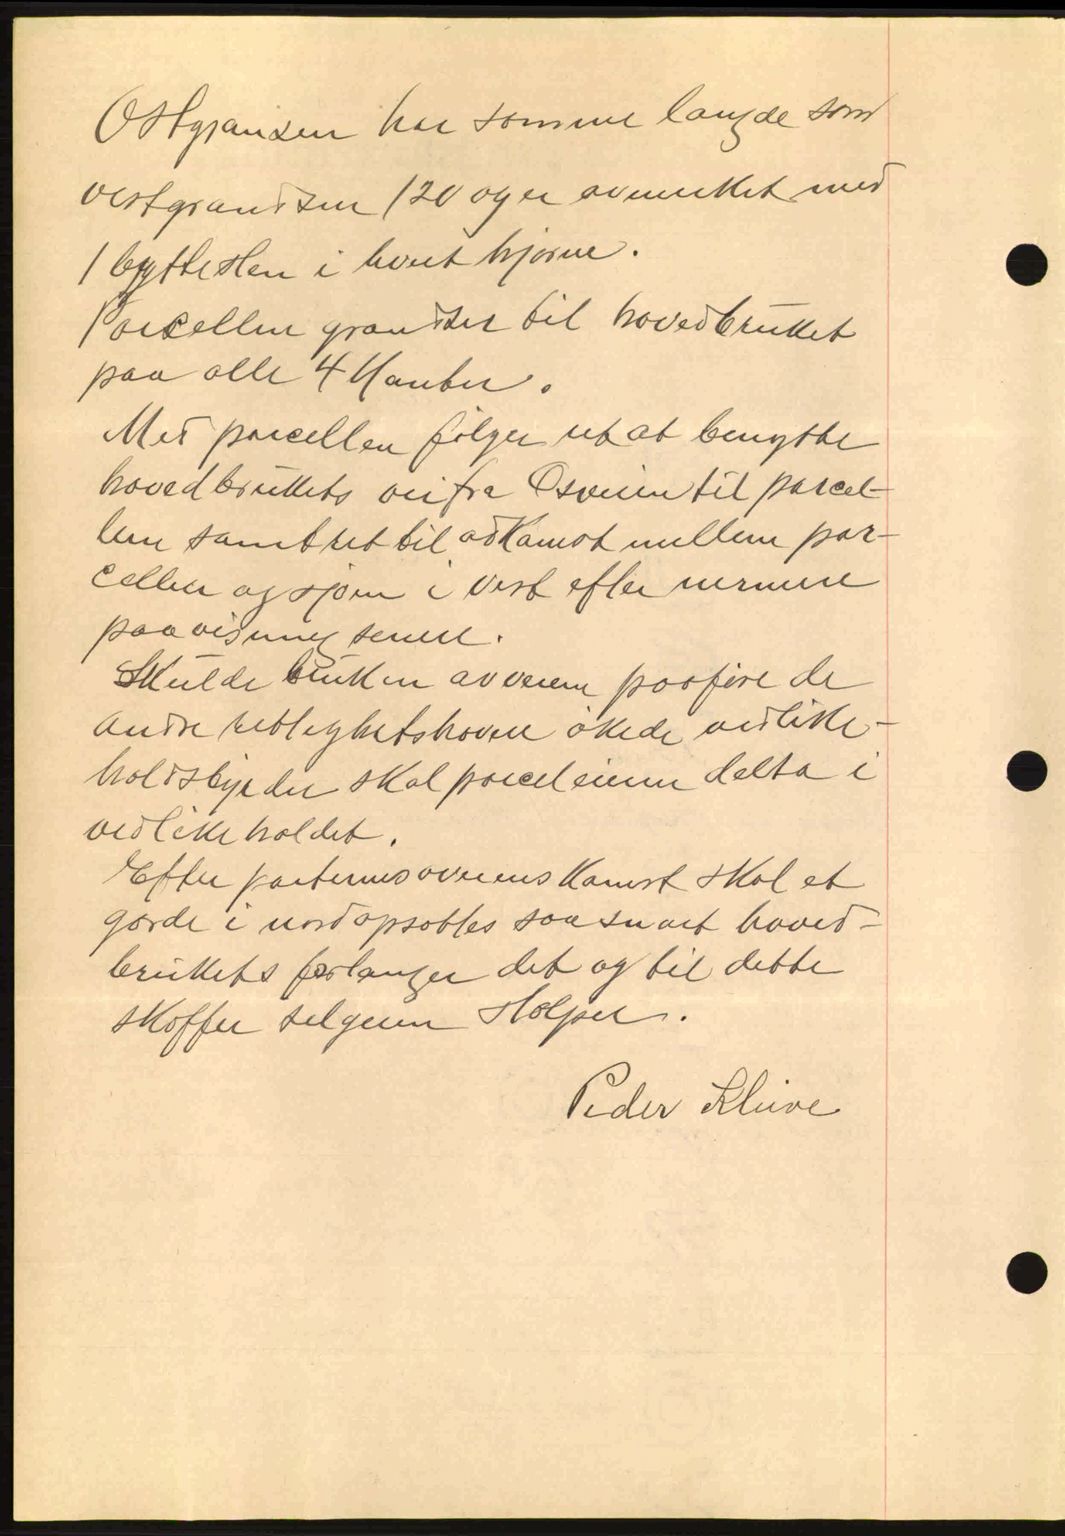 Østgransen har samme langde som
vestgrandsen 120 og er avmerket med
1 byttesten i hvert hjørne.
Parcellen grandser til hovedbruket
paa alle 4 Kanter.
Med parcellen følger ret at benytte
hovedbrukets vei fra Osveien til parcel-
len samt ret til adkomst mellem par-
cellen og sjøen i vest efter nermere
paavisning senere.
Skulde bruken av veiene paaføre de
andre retighetshavere økede vedlike-
holdsbyrder skal parceleieren delta i
vedlikeholdet.
Efter parternes overenskomst skal et
gjerde i nord opsættes saa snart hoved-
brukets forlanger det og til dette
skaffer selgeren stolper.
Peder Kleive